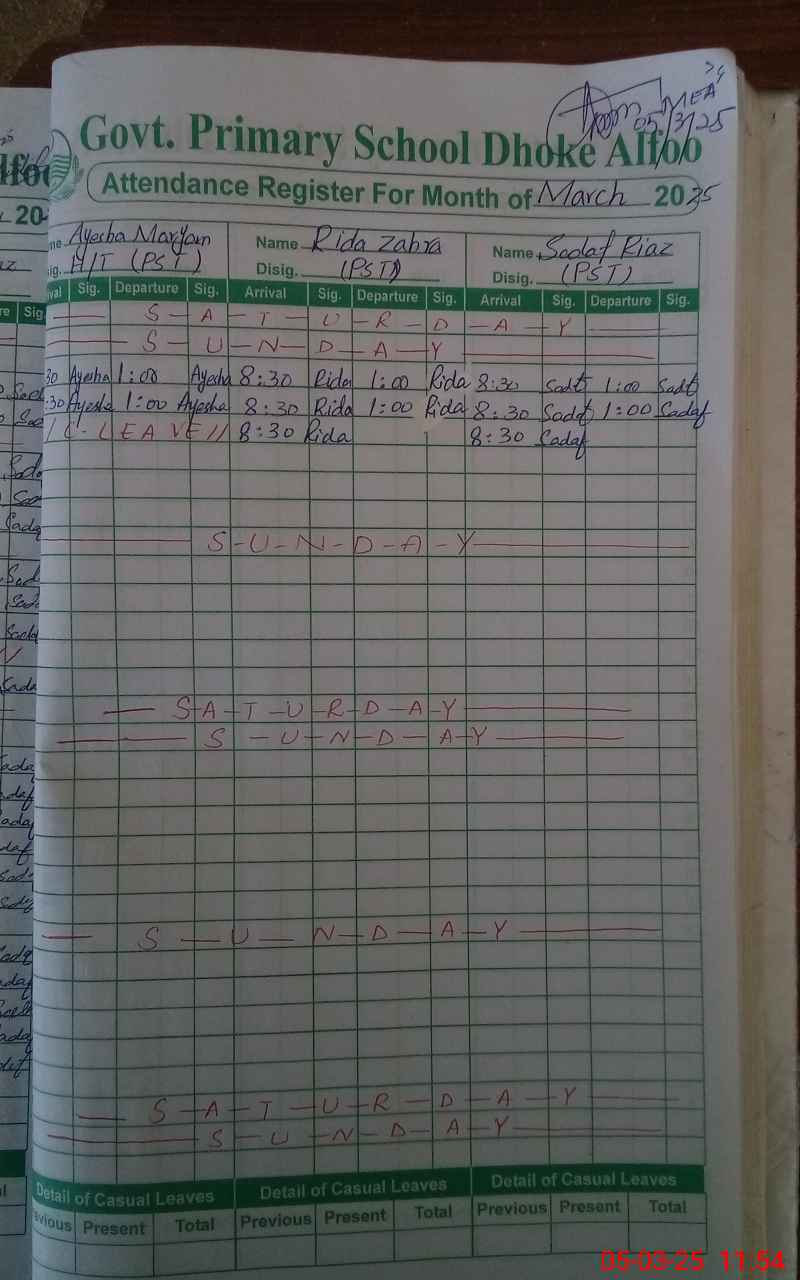 MEA
05/3/25
Govt. Primary School Dhoke Alfoo
Attendance Register For Month of March 2025
Ayesha Maryam Name Rida Zahra Name Sadaf Riaz
H/T (PST) Disig. (PST) Disig. (PST)
Sig. Departure Sig. Arrival Sig. Departure Sig. Arrival Sig. Departure Sig.
S-A-T-U-R-D-A-Y
S-U-N-D-A-Y
30 Ayesha 1:00 Ayesha 8:30 Rida 1:00 Rida 8:30 Sadf 1:00 Sadf
:30 Ayesha 1:00 Ayesha 8:30 Rida 1:00 Rida 8:30 Sadf 1:00 Sadaf
C-LEAVE// 8:30 Rida 8:30 Sadaf
S-U-N-D-A-Y
S-A-T-U-R-D-A-Y
S-U-N-D-A-Y
S-U-N-D-A-Y
S-A-T-U-R-D-A-Y
S-U-N-D-A-Y
Detail of Casual Leaves Detail of Casual Leaves Detail of Casual Leaves
evious Present Total Previous Present Total Previous Present Total
05-03-25 11:54